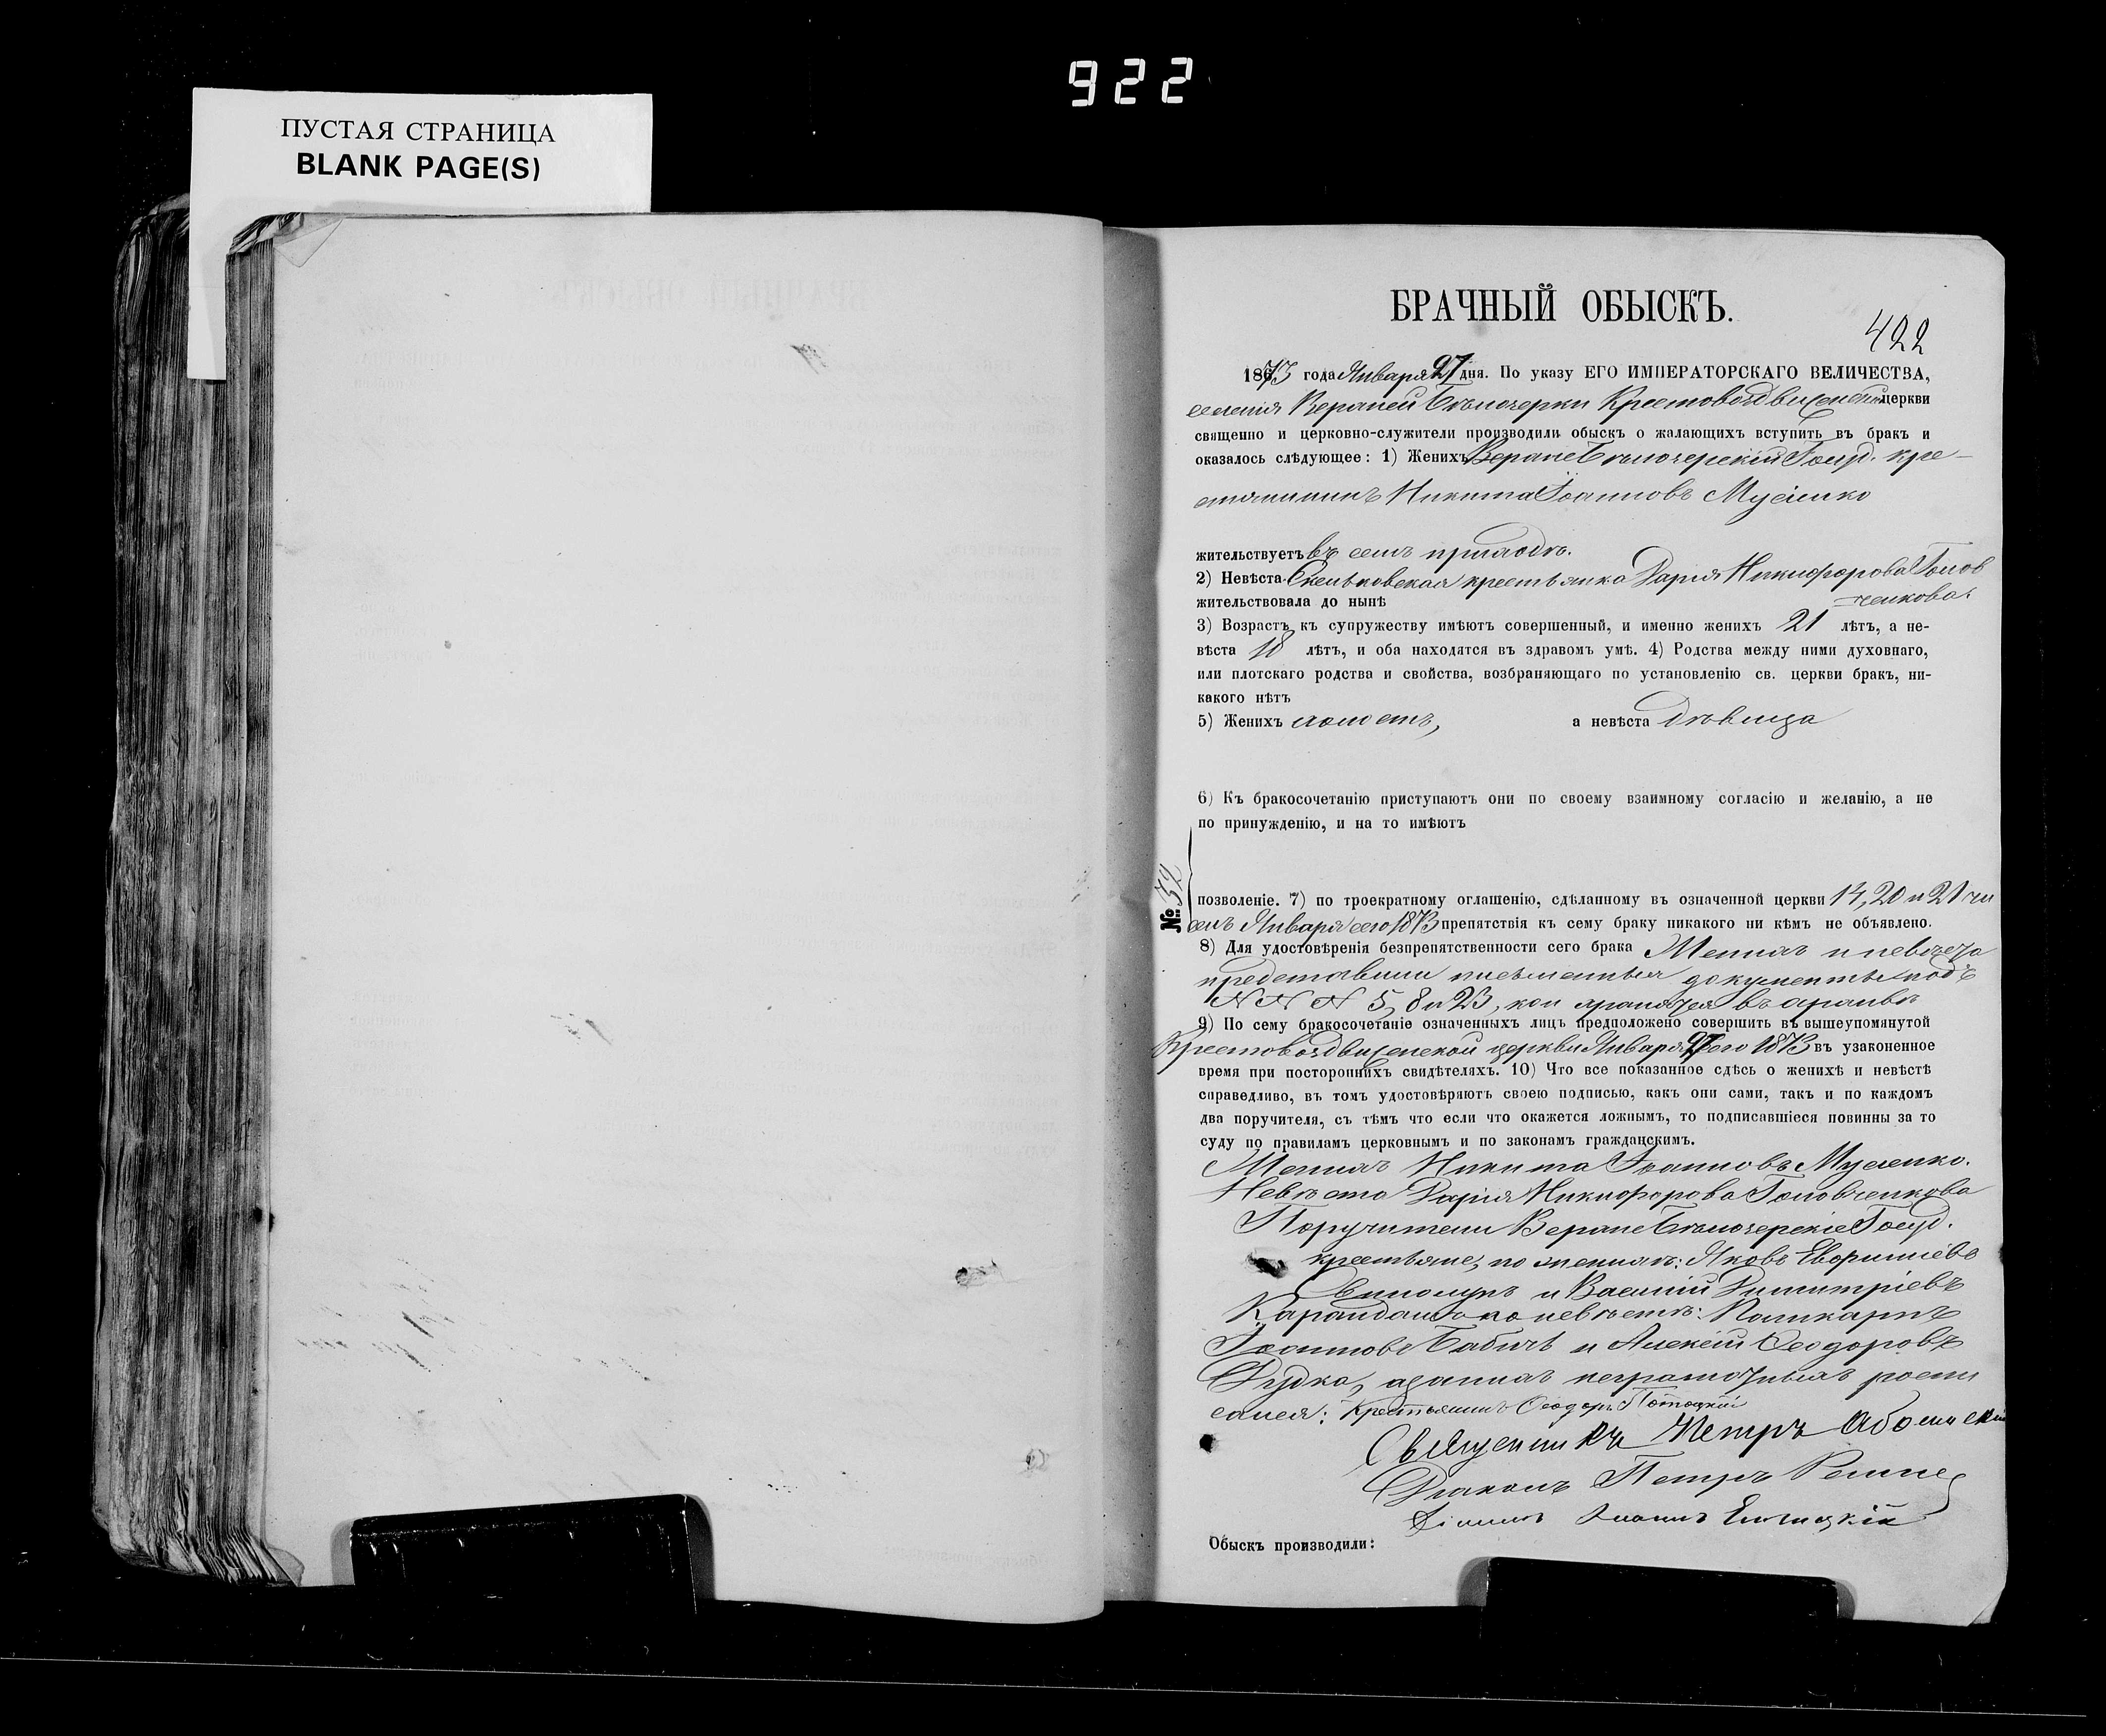 922
ПУСТАЯ СТРАНИЦА
BLANK PAGE(S)
БРАЧНЫЙ ОБЫСКЪ.
422
1873 года Января 27 дня. По указу ЕГО ИМПЕРАТОРСКАГО ВЕЛИЧЕСТВА,
селенія Верхней Бѣлозерки Крестовоздвиженской церкви
священно и церковно-служители производили обыскъ о жалающихъ вступить въ бракъ и
оказалось слѣдующее: 1) Женихъ Верхне Бѣлозерскій Госуд. кре-
стьянинъ Никита Іоанновъ Мусіенко
жительствуетъ въ семъ приходѣ.
2) Невѣста крестьянка Дарія Никифорова Голов
ченкова.
жительствовала до нынѣ
3) Возрастъ къ супружеству имѣютъ совершенный, и именно женихъ 21 лѣтъ, а не-
вѣста 18 лѣтъ, и оба находятся въ здравомъ умѣ. 4) Родства между ними духовнаго,
или плотскаго родства и свойства, возбраняющаго по установленію св. церкви бракъ, ни-
какого нѣтъ
5) Женихъ холостъ, а невѣста дѣвица
6) Къ бракосочетанію приступаютъ они по своему взаимному согласію и желанію, а не
по принужденію, и на то имѣютъ
№ 32
позволеніе. 7) по троекратному оглашенію, сдѣланному въ означенной церкви 14, 20 и 21 чи
селъ Января сего 1873 препятствія къ сему браку никакого ни кѣмъ не объявлено.
8) Для удостовѣренія безпрепятственности сего брака Женихъ и невѣста
представили письменные документы подъ
N N N 5, 8 и 23, кои хранятся въ архивѣ
9) По сему бракосочетаніе означенныхъ лицъ предположено совершить въ вышеупомянутой
Крестовоздвиженской церкви Января 27 сего 1873 въ узаконенное
время при постороннихъ свидѣтеляхъ. 10) Что все показанное сдѣсь о женихѣ и невѣстѣ
справедливо, въ томъ удостовѣряютъ своею подписью, какъ они сами, такъ и по каждомъ
два поручителя, съ тѣмъ что если что окажется ложнымъ, то подписавшіеся повинны за то
суду по правиламъ церковнымъ и по законамъ гражданскимъ.
Женихъ Никита Іоанновъ Мусіенко.
Невѣста Дарія Никифорова Головченкова
Поручители Верхне Бѣлозерскіе Госуд.
крестьяне, по женихѣ: Яковъ
и Василій Димитріевъ
Карандашъ по невѣстѣ:
Іоанновъ Бабичъ и Алексій Ѳеодоровъ
Дудка, а за нихъ неграмотныхъ роспи
сался: Крестьянинъ Ѳеодоръ Потоцкій
Священникъ Петръ
Діаконъ Петръ
Іоаннъ
Обыскъ производили: